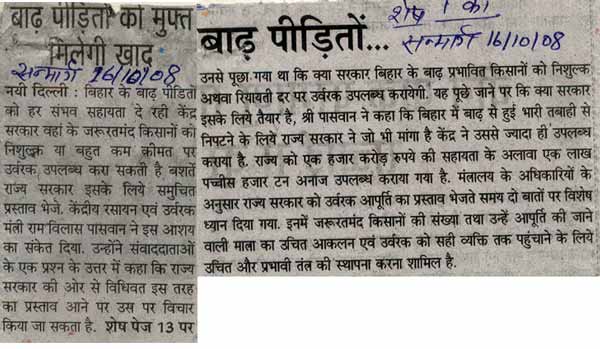 बाढ़ पीड़ितों को मुफ्त
मिलेगी खाद
सन्मार्ग 16/10/08
नयी दिल्ली : बिहार के बाढ़ पीड़ितों
को हर संभव सहायता दे रही केंद्र
सरकार वहां के जरूरतमंद किसानों को
निशुल्क या बहुत कम क्रीमत पर
उर्वरक उपलब्ध करा सकती है बशर्ते
राज्य सरकार इसके लिये समुचित
प्रस्ताव भेजे. केंद्रीय रसायन एवं उर्वरक
मंत्री राम विलास पासवान ने इस आशय
का संकेत दिया. उन्होंने संवाददाताओं
के एक प्रश्न के उत्तर में कहा कि राज्य
सरकार की ओर से विधिवत इस तरह
का प्रस्ताव आने पर उस पर विचार
किया जा सकता है. शेष पेज 13 पर
शेष 1 का
बाढ़ पीड़ितों...
सन्मार्ग 16/10/08
उनसे पूछा गया था कि क्या सरकार बिहार के बाढ़ प्रभावित किसानों को निशुल्क
अथवा रियायती दर पर उर्वरक उपलब्ध करायेगी. यह पूछे जाने पर कि क्या सरकार
इसके लिये तैयार है, श्री पासवान ने कहा कि बिहार में बाढ़ से हुई भारी तबाही से
निपटने के लिये राज्य सरकार ने जो भी मांगा है केंद्र ने उससे ज्यादा ही उपलब्ध
कराया है. राज्य को एक हजार करोड़ रुपये की सहायता के अलावा एक लाख
पच्चीस हजार टन अनाज उपलब्ध कराया गया है. मंत्रालय के अधिकारियों के
अनुसार राज्य सरकार को उर्वरक आपूर्ति का प्रस्ताव भेजते समय दो बातों पर विशेष
ध्यान दिया गया. इनमें जरूरतमंद किसानों की संख्या तथा उन्हें आपूर्ति की जाने
वाली मात्रा का उचित आकलन एवं उर्वरक को सही व्यक्ति तक पहुंचाने के लिये
उचित और प्रभावी तंत्र की स्थापना करना शामिल है.